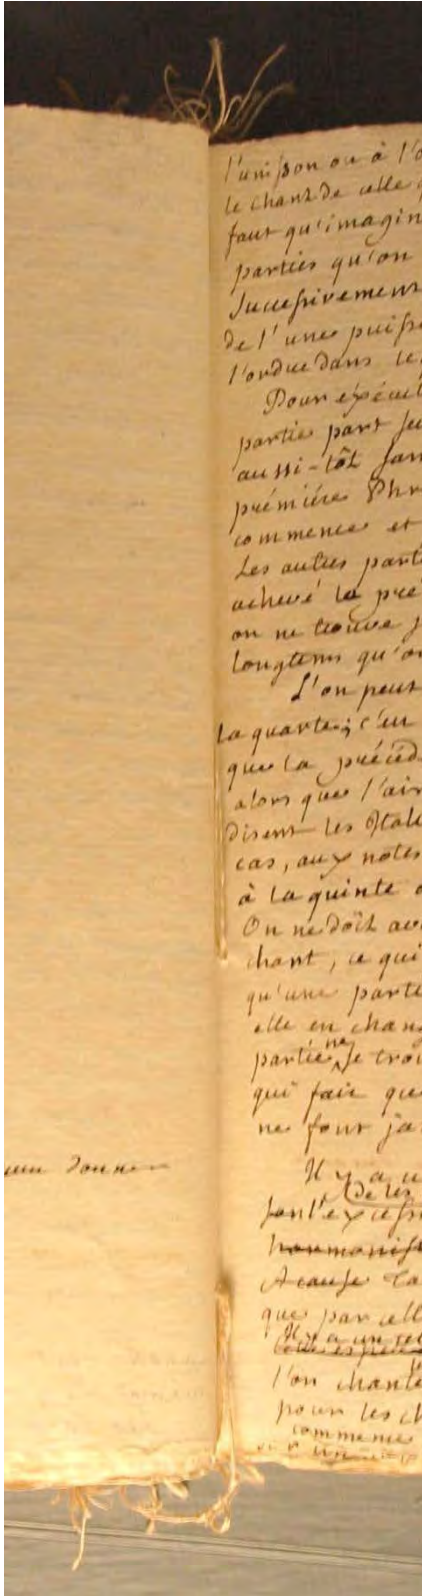 donner
l'unisson ou à l'o
le chant de celle
faut qu'imagin
parties qu'on
successivement
de l'une puisse
l'ordre dans le
Pour exécut
partie part
aussi-tôt san
prémiére Phr
commence et
Les autres part
achevé la pre
on ne trouve
longtems qu'on
L'on peut
la quarte; c'en
que la précéd
alors que l'air
disent les Itali
cas, aux notes
à la quinte
On ne doit av
chant, ce qui
qu'une parti
elle en chan
partie ne se trou
qui fait que
ne font ja
Il y a u
de les
font
harmonis
A cause
que par cell
Il y a un
l'on chante
pour les ch
commence
sur un